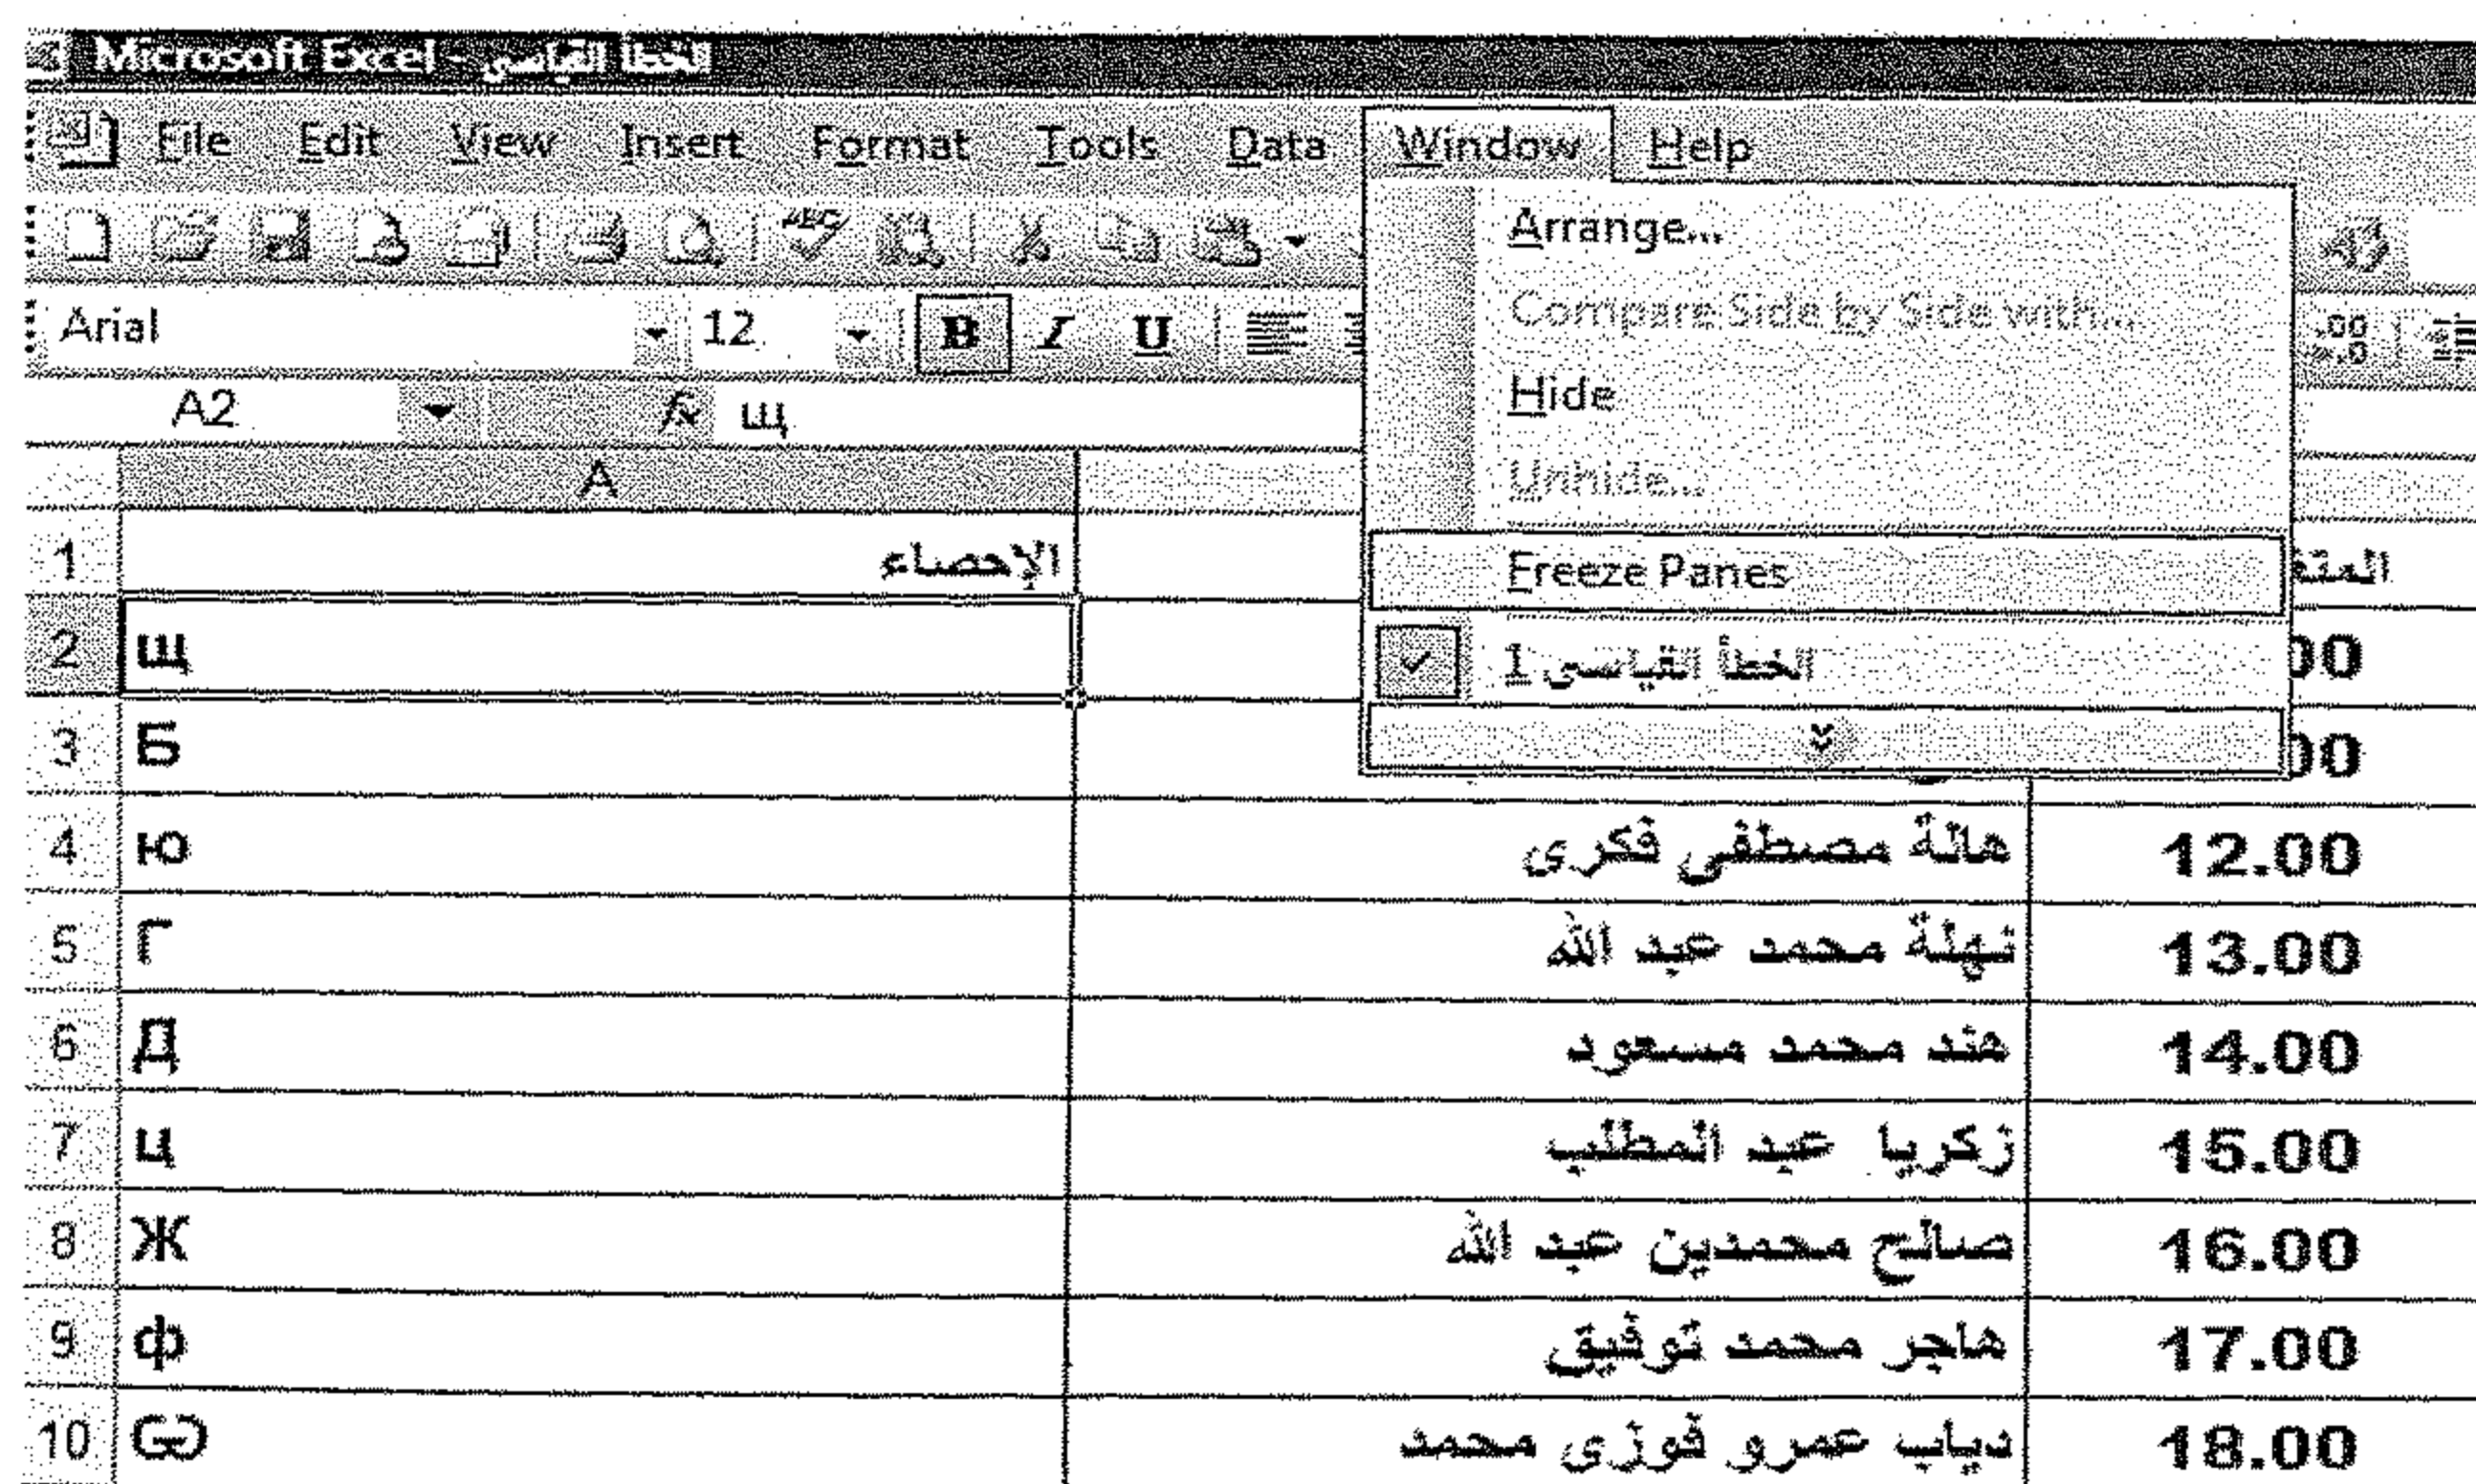 Microsoft Excel - الخطأ القياسي
File Edit View Insert Format Tools Data Window Help
Arrange...
ABC
Compare Side by Side with...
Arial 12 B I U .00 .0
Hide
A2 fx щ
Unhide...
A
Freeze Panes
1 الإحصاء
1 الخطأ القياسى
2 щ 00
3 Б 00
4 ю هالة مصطفى فكرى 12.00
5 Г نهلة محمد عبد الله 13.00
6 Д هند محمد مسعود 14.00
7 ц زكريا عبد المطلب 15.00
8 Ж صالح محمدين عبد الله 16.00
9 ф هاجر محمد توفيق 17.00
10 Ѡ دياب عمرو فوزى محمد 18.00